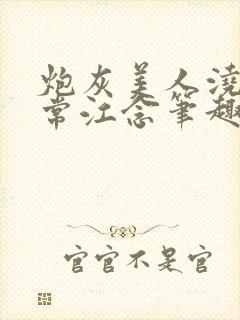 炮灰美人浇
常江念笔趣
官官不是官